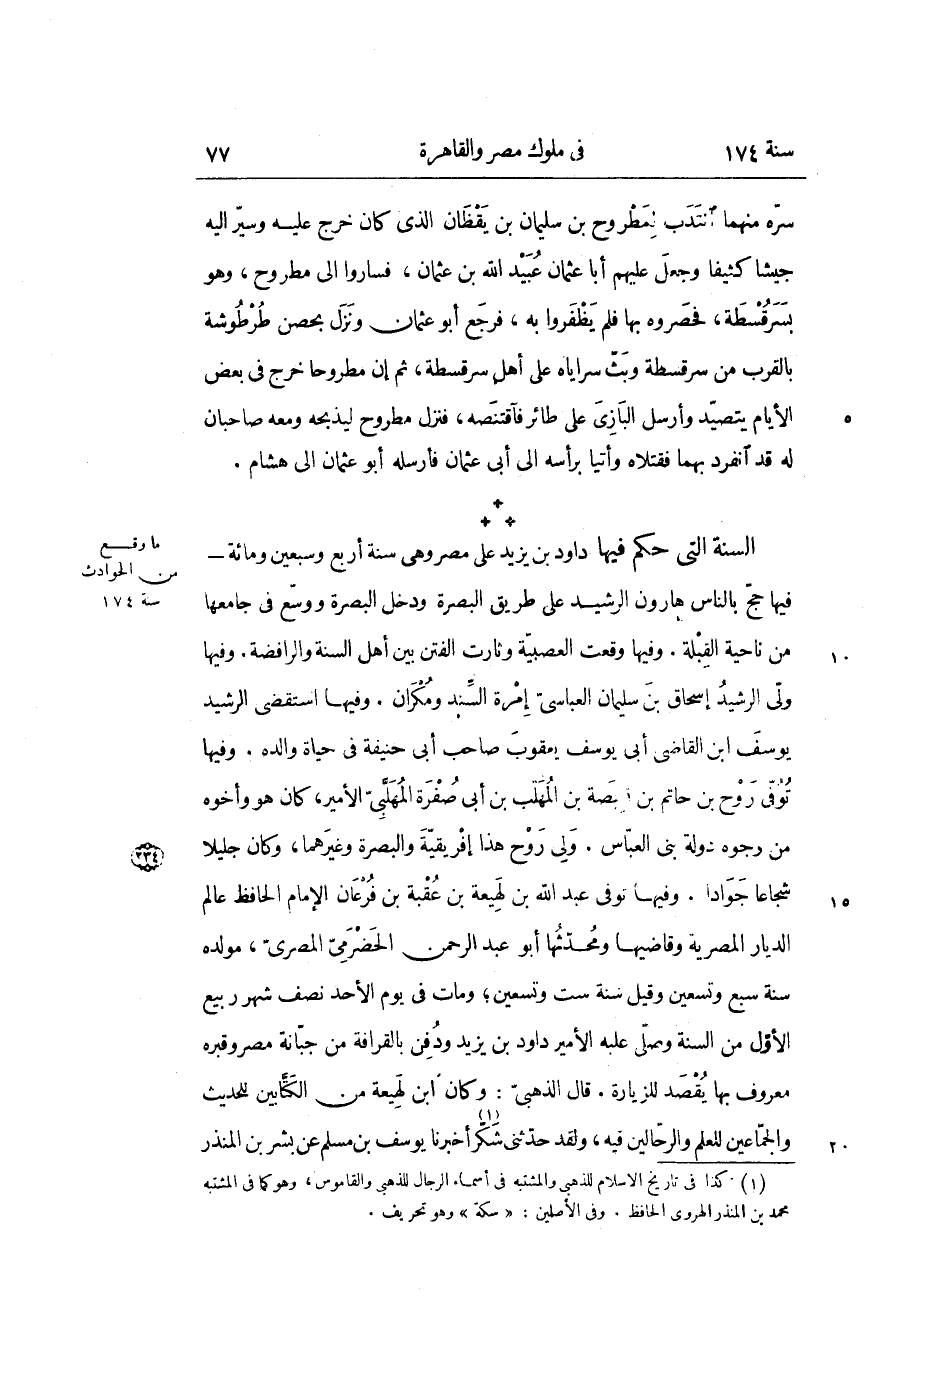 سنة ١٧٤ فى ملوك مصر والقاهرة ٧٧
سرّه منهما ٱنتَدَب لِمَطْروح بن سليمان بن يَقْظَان الذى كان خرج عليه وسيّر اليه
جيشا كثيفا وجعلَ عليهم أبا عثمان عُبَيْد الله بن عثمان ، فساروا الى مطروح ، وهو
بسَرَقُسْطَة، فحَصَروه بها فلم يَظْفَروا به ، فرجَع أبو عثمان ونَزَل بحصن طُرْطُوشة
بالقرب من سرقسطة وبَثّ سراياه على أهل سرقسطة ، ثم إن مطروحا خرج فى بعض
الأيام يتصيّد وأرسل البَازِىَ على طائر فآقتنَصه ، فنزل مطروح ليذبحه ومعه صاحبان ٥
له قد ٱنفرد بهما فقتلاه وأتيا برأسه الى أبى عثمان فأرسله أبو عثمان الى هشام .
السنة التى حكم فيها داود بن يزيد على مصر وهى سنة أربع وسبعين ومائة ــ
ما وقـع
من الحوادث
سنة ١٧٤
فيها حجّ بالناس هارون الرشيد على طريق البصرة ودخل البصرة ووسّع فى جامعها
من ناحية القِبْلة . وفيها وقعت العصبيّة وثارت الفتن بين أهل السنة والرافضة . وفيها ١٠
ولّى الرشيدُ إسحاق بنَ سليمان العباسىّ إمْرة السِّند ومُكْرَان . وفيها استقضى الرشيد
يوسفَ ابن القاضى أبى يوسف يعقوبَ صاحب أبى حنيفة فى حياة والده . وفيها
تُوُفّى رَوْح بن حاتم بن قبِصة بن المُهَلّب بن أبى صُفْرَة المُهَلَّبِىّ الأمير، كان هو وأخوه
من وجوه دولة بنى العبّاس . وَلِى رَوْح هذا إفْريقيّة والبصرة وغيرَهما، وكان جليلا
٢٣٤
شجاعا جَوَادا . وفيها توفى عبد الله بن لَهِيعة بن عُقْبة بن فُرْعَان الإمام الحافظ عالم ١٥
الديار المصرية وقاضيها ومُحدّثُها أبو عبد الرحمن الحَضْرَمِىّ المصرىّ ، مولده
سنة سبع وتسعين وقيل سنة ست وتسعين؛ ومات فى يوم الأحد نصف شهر ربيع
الأوّل من السنة وصلّى عليه الأمير داود بن يزيد ودُفِن بالقرافة من جبّانة مصر وقبره
معروف بها يُقْصَد للزيارة . قال الذهبىّ : وكان ٱبن لَهِيعة من الكَتَّابين للحديث
والجمّاعين للعلم والرحّالين فيه ، ولقد حدّثنى شَكَّر (١) أخبرنا يوسف بن مسلم عن بشر بن المنذر ٢٠
(١) كذا فى تاريخ الاسلام للذهبى والمشتبه فى أسماء الرجال للذهبى والقاموس ، وهو كما فى المشتبه
محمد بن المنذر الهروى الحافظ . وفى الأصلين : « سكة » وهو تحريف .